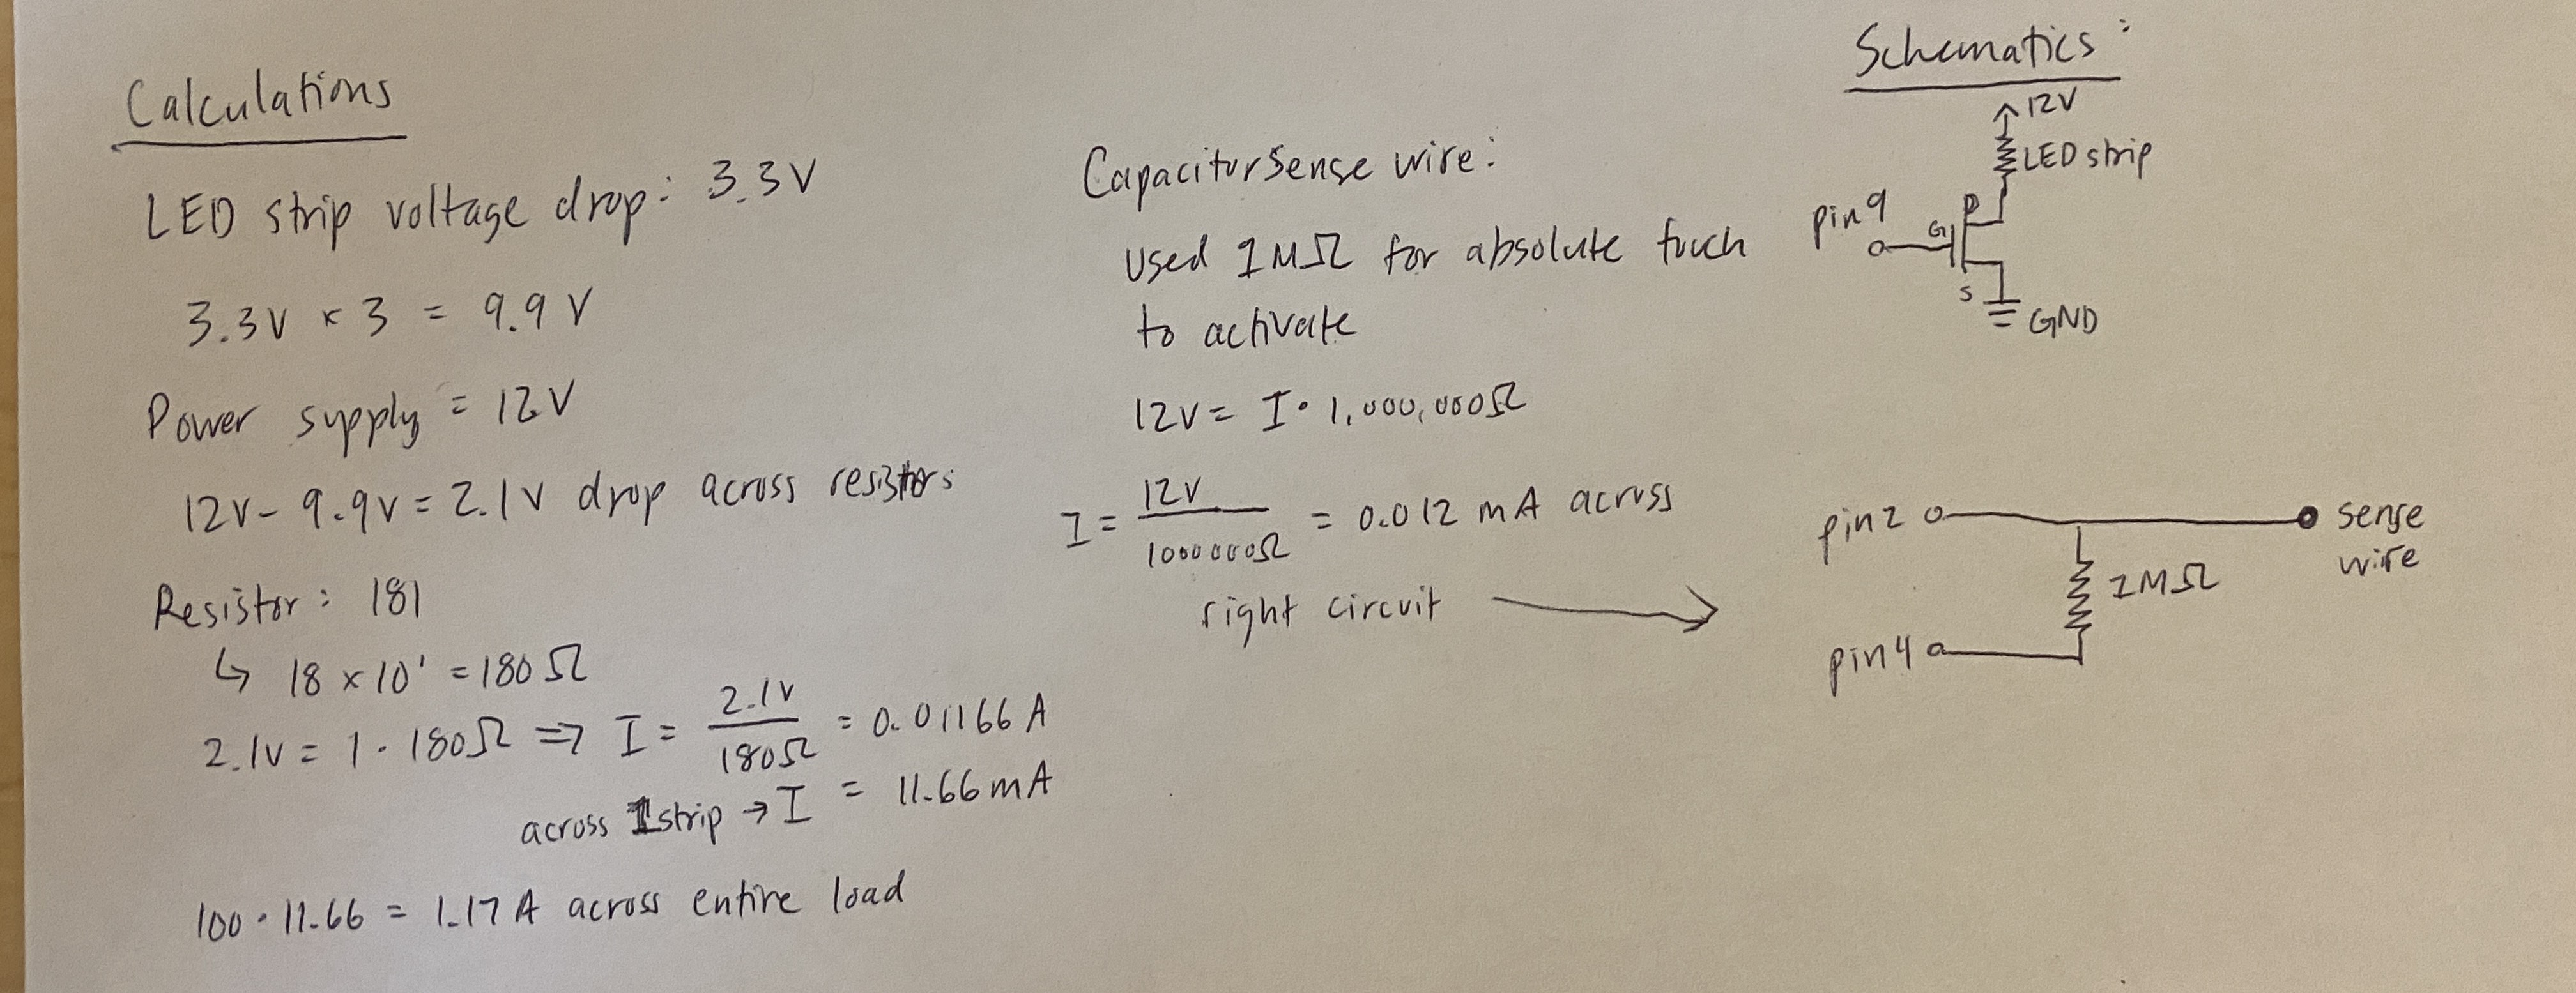 Calculations
LED strip voltage drop: 3.3V
3.3V × 3 = 9.9V
Power supply = 12V
12V - 9.9V = 2.1V drop across resistors
Resistor: 181
↳ 18 × 10¹ = 180Ω
2.1V = I · 180Ω => I = 2.1V / 180Ω = 0.01166 A
across 1 strip → I = 11.66mA
100 · 11.66 = 1.17 A across entire load
CapacitorSense wire:
used 1MΩ for absolute touch
to activate
12V = I · 1,000,000Ω
I = 12V / 1000000Ω = 0.012 mA across
right circuit →
Schematics:
12V
LED strip
pin 9
D
G
S
GND
pin 2
sense
wire
1MΩ
pin 4